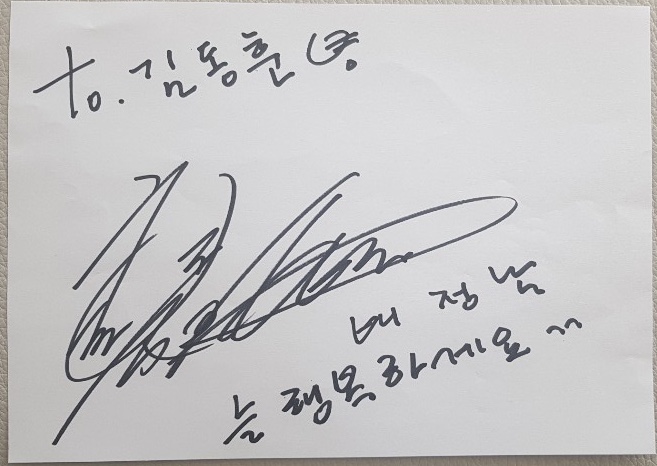 to. 김동훈 님
배정남
늘 행복하세요 ^^